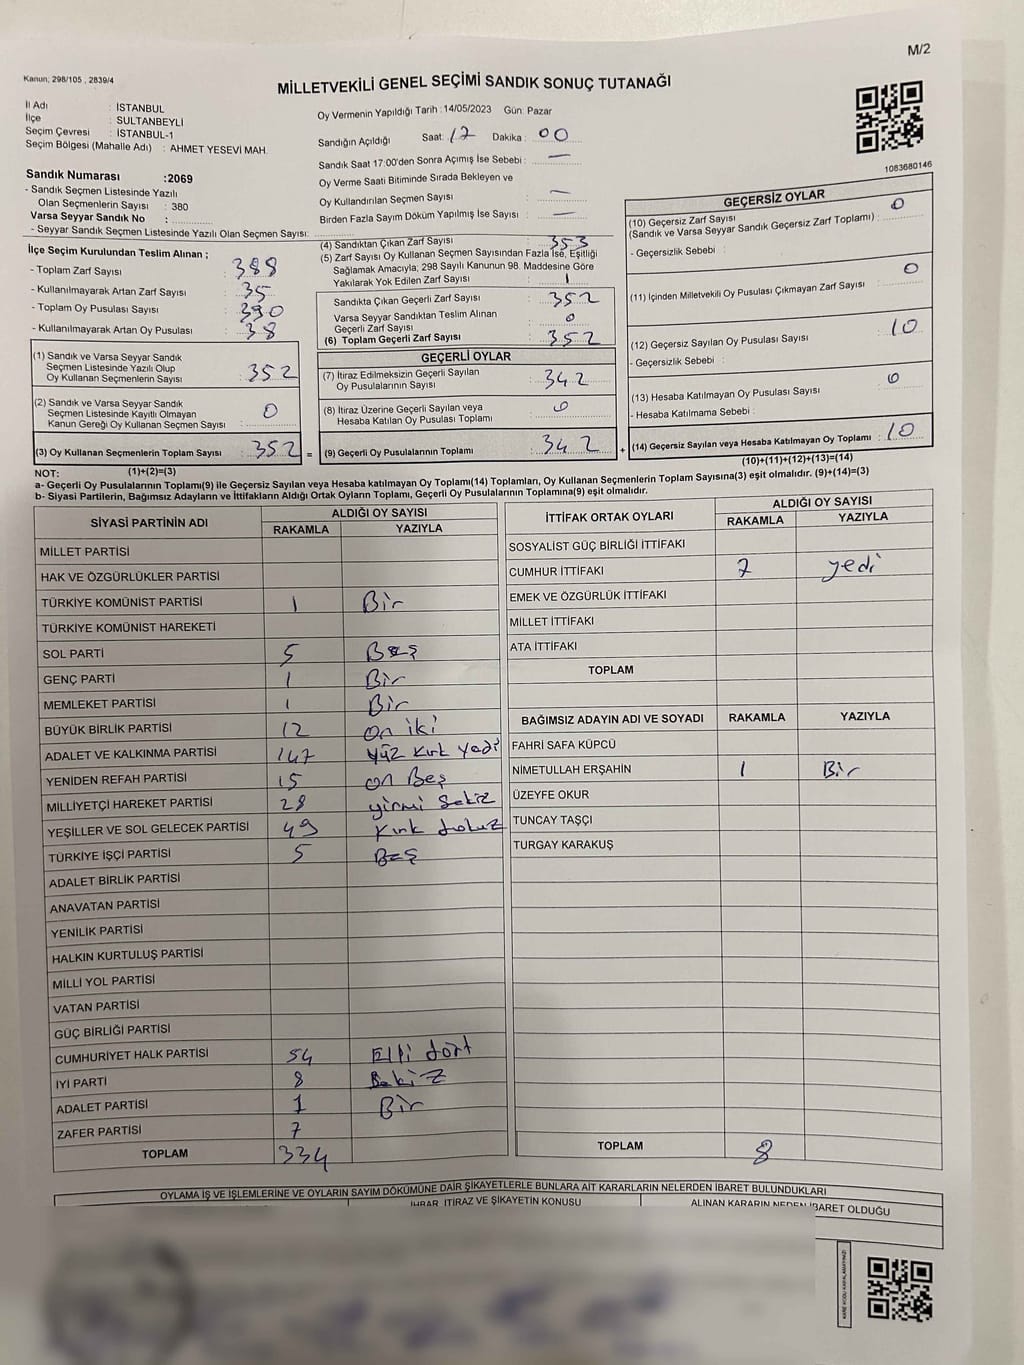 M/2
Kanun; 298/105 , 2839/4
MİLLETVEKİLİ GENEL SEÇİMİ SANDIK SONUÇ TUTANAĞI
İl Adı : İSTANBUL
İlçe : SULTANBEYLİ
Seçim Çevresi : İSTANBUL-1
Seçim Bölgesi (Mahalle Adı) : AHMET YESEVİ MAH.
Oy Vermenin Yapıldığı Tarih : 14/05/2023 Gün: Pazar
Sandığın Açıldığı Saat: 17 Dakika : 00
Sandık Saat 17:00'den Sonra Açımış İse Sebebi : —
Oy Verme Saati Bitiminde Sırada Bekleyen ve
Oy Kullandırılan Seçmen Sayısı : —
Birden Fazla Sayım Döküm Yapılmış İse Sayısı : —
1083680146
Sandık Numarası :2069
- Sandık Seçmen Listesinde Yazılı
Olan Seçmenlerin Sayısı : 380
Varsa Seyyar Sandık No :
- Seyyar Sandık Seçmen Listesinde Yazılı Olan Seçmen Sayısı:
İlçe Seçim Kurulundan Teslim Alınan ;
- Toplam Zarf Sayısı : 388
- Kullanılmayarak Artan Zarf Sayısı : 35
- Toplam Oy Pusulası Sayısı : 390
- Kullanılmayarak Artan Oy Pusulası : 38
(1) Sandık ve Varsa Seyyar Sandık
Seçmen Listesinde Yazılı Olup
Oy Kullanan Seçmenlerin Sayısı : 352
(2) Sandık ve Varsa Seyyar Sandık
Seçmen Listesinde Kayıtlı Olmayan
Kanun Gereği Oy Kullanan Seçmen Sayısı : 0
(3) Oy Kullanan Seçmenlerin Toplam Sayısı : 352 =
(4) Sandıktan Çıkan Zarf Sayısı : 353
(5) Zarf Sayısı Oy Kullanan Seçmen Sayısından Fazla İse, Eşitliği
Sağlamak Amacıyla; 298 Sayılı Kanunun 98. Maddesine Göre
Yakılarak Yok Edilen Zarf Sayısı : 1
Sandıkta Çıkan Geçerli Zarf Sayısı : 352
Varsa Seyyar Sandıktan Teslim Alınan
Geçerli Zarf Sayısı : 0
(6) Toplam Geçerli Zarf Sayısı : 352
GEÇERLİ OYLAR
(7) İtiraz Edilmeksizin Geçerli Sayılan
Oy Pusulalarının Sayısı : 342
(8) İtiraz Üzerine Geçerli Sayılan veya
Hesaba Katılan Oy Pusulası Toplamı : 0
(9) Geçerli Oy Pusulalarının Toplamı : 342 +
GEÇERSİZ OYLAR
(10) Geçersiz Zarf Sayısı
(Sandık ve Varsa Seyyar Sandık Geçersiz Zarf Toplamı) : 0
- Geçersizlik Sebebi :
(11) İçinden Milletvekili Oy Pusulası Çıkmayan Zarf Sayısı : 0
(12) Geçersiz Sayılan Oy Pusulası Sayısı : 10
- Geçersizlik Sebebi :
(13) Hesaba Katılmayan Oy Pusulası Sayısı : 0
- Hesaba Katılmama Sebebi :
(14) Geçersiz Sayılan veya Hesaba Katılmayan Oy Toplamı : 10
NOT: (1)+(2)=(3) (10)+(11)+(12)+(13)=(14)
a- Geçerli Oy Pusulalarının Toplamı(9) ile Geçersiz Sayılan veya Hesaba katılmayan Oy Toplamı(14) Toplamları, Oy Kullanan Seçmenlerin Toplam Sayısına(3) eşit olmalıdır. (9)+(14)=(3)
b- Siyasi Partilerin, Bağımsız Adayların ve İttifakların Aldığı Ortak Oyların Toplamı, Geçerli Oy Pusulalarının Toplamına(9) eşit olmalıdır.
SİYASİ PARTİNİN ADI ALDIĞI OY SAYISI
RAKAMLA YAZIYLA
MİLLET PARTİSİ
HAK VE ÖZGÜRLÜKLER PARTİSİ
TÜRKİYE KOMÜNİST PARTİSİ 1 Bir
TÜRKİYE KOMÜNİST HAREKETİ
SOL PARTİ 5 Beş
GENÇ PARTİ 1 Bir
MEMLEKET PARTİSİ 1 Bir
BÜYÜK BİRLİK PARTİSİ 12 on iki
ADALET VE KALKINMA PARTİSİ 147 yüz kırk yedi
YENİDEN REFAH PARTİSİ 15 on Beş
MİLLİYETÇİ HAREKET PARTİSİ 28 yirmi sekiz
YEŞİLLER VE SOL GELECEK PARTİSİ 49 kırk dokuz
TÜRKİYE İŞÇİ PARTİSİ 5 Beş
ADALET BİRLİK PARTİSİ
ANAVATAN PARTİSİ
YENİLİK PARTİSİ
HALKIN KURTULUŞ PARTİSİ
MİLLİ YOL PARTİSİ
VATAN PARTİSİ
GÜÇ BİRLİĞİ PARTİSİ
CUMHURİYET HALK PARTİSİ 54 Elli dört
İYİ PARTİ 8 Sekiz
ADALET PARTİSİ 1 Bir
ZAFER PARTİSİ 7
TOPLAM 334
İTTİFAK ORTAK OYLARI ALDIĞI OY SAYISI
RAKAMLA YAZIYLA
SOSYALİST GÜÇ BİRLİĞİ İTTİFAKI
CUMHUR İTTİFAKI 7 yedi
EMEK VE ÖZGÜRLÜK İTTİFAKI
MİLLET İTTİFAKI
ATA İTTİFAKI
TOPLAM
BAĞIMSIZ ADAYIN ADI VE SOYADI RAKAMLA YAZIYLA
FAHRİ SAFA KÜPCÜ
NİMETULLAH ERŞAHİN 1 Bir
ÜZEYFE OKUR
TUNCAY TAŞÇI
TURGAY KARAKUŞ
TOPLAM 8
OYLAMA İŞ VE İŞLEMLERİNE VE OYLARIN SAYIM DÖKÜMÜNE DAİR ŞİKAYETLERLE BUNLARA AİT KARARLARIN NELERDEN İBARET BULUNDUKLARI
İHBAR, İTİRAZ VE ŞİKAYETİN KONUSU ALINAN KARARIN NEDEN İBARET OLDUĞU